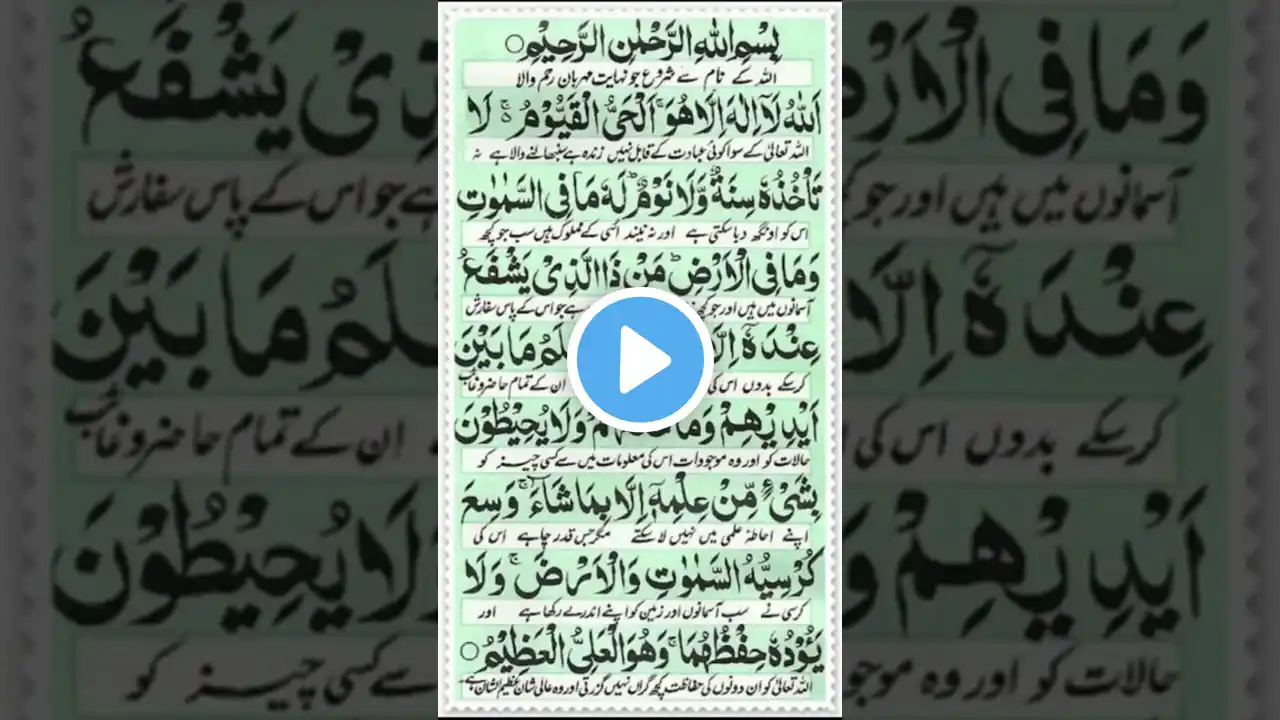 بِسْمِ اللهِ الرَّحْمٰنِ الرَّحِيْمِ
اللہ کے نام سے شروع جو نہایت مہربان رحم والا
اَللهُ لَآ اِلٰهَ اِلَّا هُوَ ۚ اَلْحَىُّ الْقَيُّوْمُ ۚ لَا
اللہ تعالیٰ کے سوا کوئی عبادت کے قابل نہیں زندہ ہے سنبھالنے والا ہے نہ
تَاْخُذُهٗ سِنَةٌ وَّلَا نَوْمٌ ؕ لَهٗ مَا فِى السَّمٰوٰتِ
اس کو اونگھ دبا سکتی ہے اور نہ نیند اسی کے مملوک ہیں سب جو کچھ
وَمَا فِى الْاَرْضِ ؕ مَنْ ذَا الَّذِىْ يَشْفَعُ
آسمانوں میں ہیں اور جو کچھ ہے جو اس کے پاس سفارش
عِنْدَهٗٓ اِلَّا مَا بَيْنَ
کرسکے بدوں اس کی ان کے تمام حاضر و غائب
اَيْدِيْهِمْ وَمَا وَلَا يُحِيْطُوْنَ
حالات کو اور وہ موجودات اس کی معلومات میں سے کسی چیز کو
بِشَىْءٍ مِّنْ عِلْمِهٖٓ اِلَّا بِمَا شَآءَ ۚ وَسِعَ
اپنے احاطۂ علمی میں نہیں لا سکتے مگر جس قدر چاہے اس کی
كُرْسِيُّهُ السَّمٰوٰتِ وَالْاَرْضَ ۚ وَلَا
کرسی نے سب آسمانوں اور زمین کو اپنے اندر لے رکھا ہے اور
يَـُٔوْدُهٗ حِفْظُهُمَا ۚ وَهُوَ الْعَلِىُّ الْعَظِيْمُ
اللہ تعالیٰ کو ان دونوں کی حفاظت کچھ گراں نہیں گزرتی اور وہ عالی شان عظیم الشان ہے